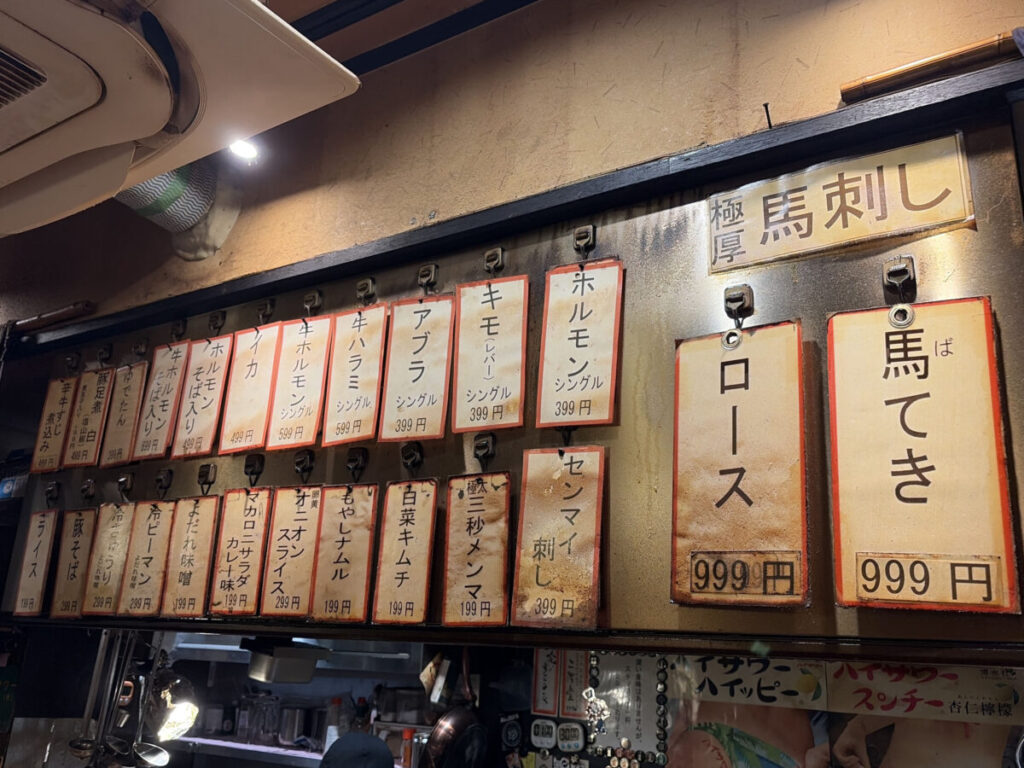 極厚 馬刺し
馬てき
ば
999円
ロース
999円
ホルモン
シングル
399円
キモ(レバー)
シングル
399円
アブラ
シングル
399円
牛ハラミ
シングル
599円
牛ホルモン
シングル
599円
イカ
499円
ホルモン
そば入り
499円
牛ホルモン
そば入り
牛すじ
煮込み
センマイ
刺し
399円
極太
三秒メンマ
199円
白菜キムチ
199円
もやしナムル
199円
オニオン
スライス
299円
マカロニサラダ
カレー味
199円
よだれ味噌
199円
冷ピーマン
299円
299円
豚そば
299円
ライス
199円
イサワー
ハイッピー
ハイサワー
スンチー
杏仁檸檬